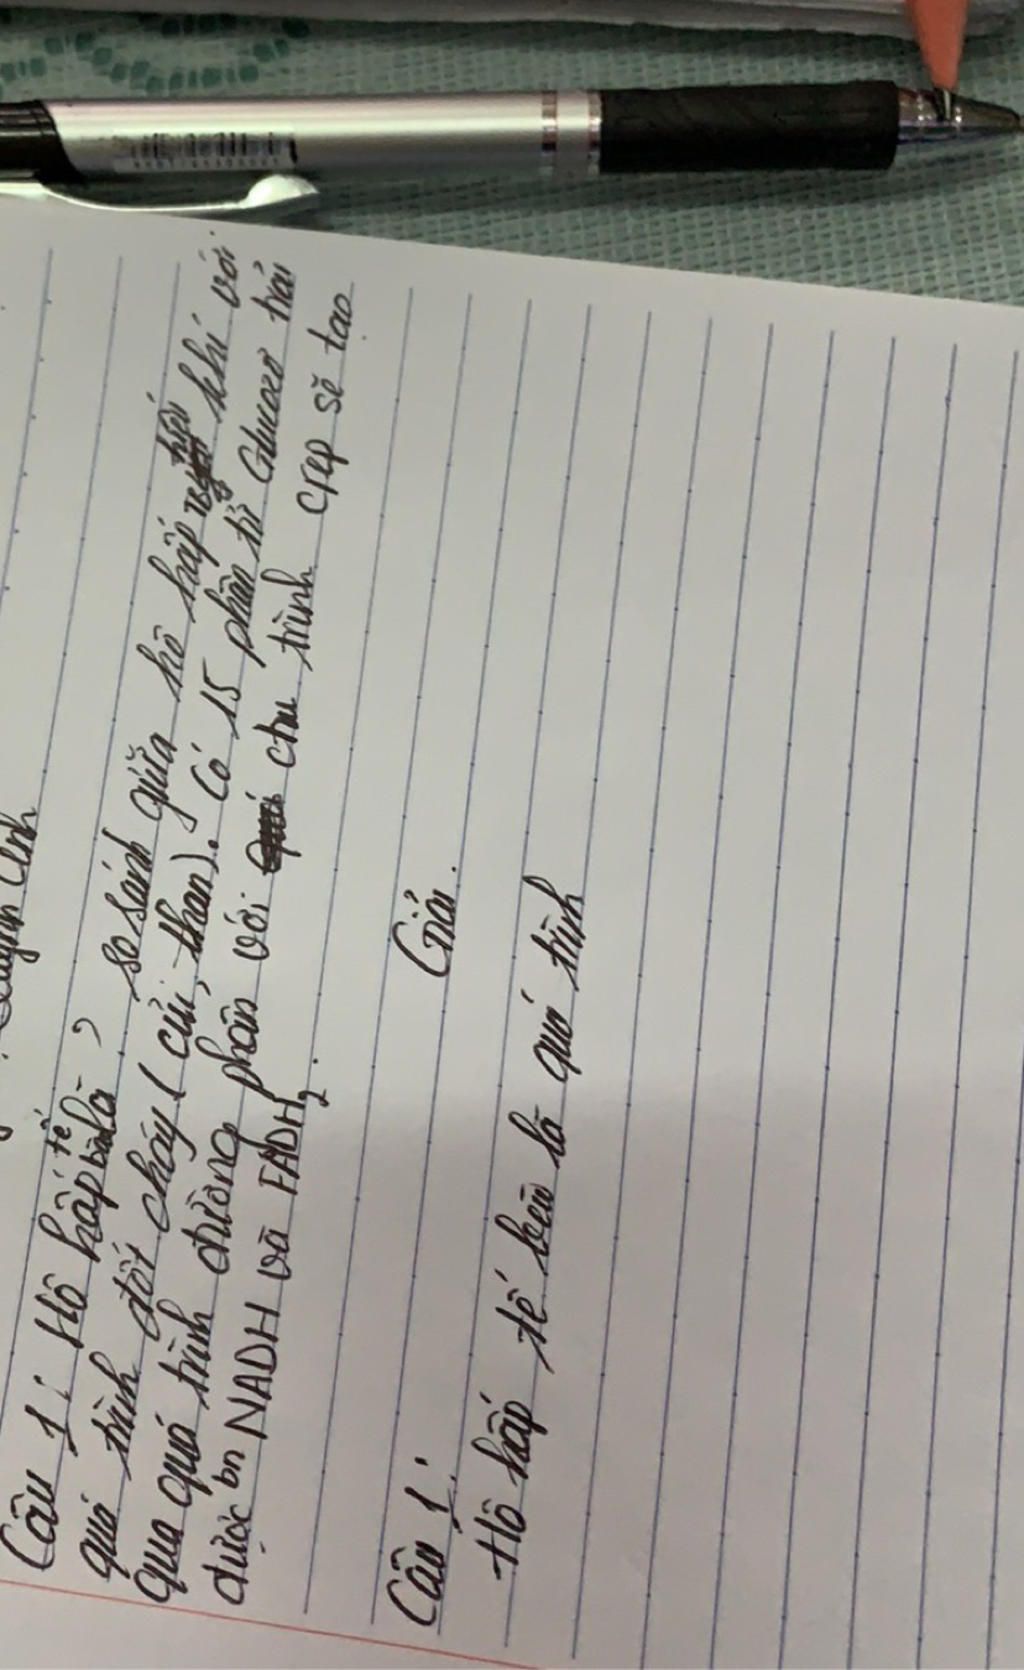 Quỳnh Anh
Câu 1: Hô hấp tế bào là? so sánh giữa hô hấp hiếu khí với
quá trình đốt cháy (củi, than). Có 15 phân tử Glucozơ trải
qua quá trình đường phân với chu trình crep sẽ tạo
được bn NADH và FADH2.
Giải.
Câu 1:
Hô hấp tế bào là quá trình